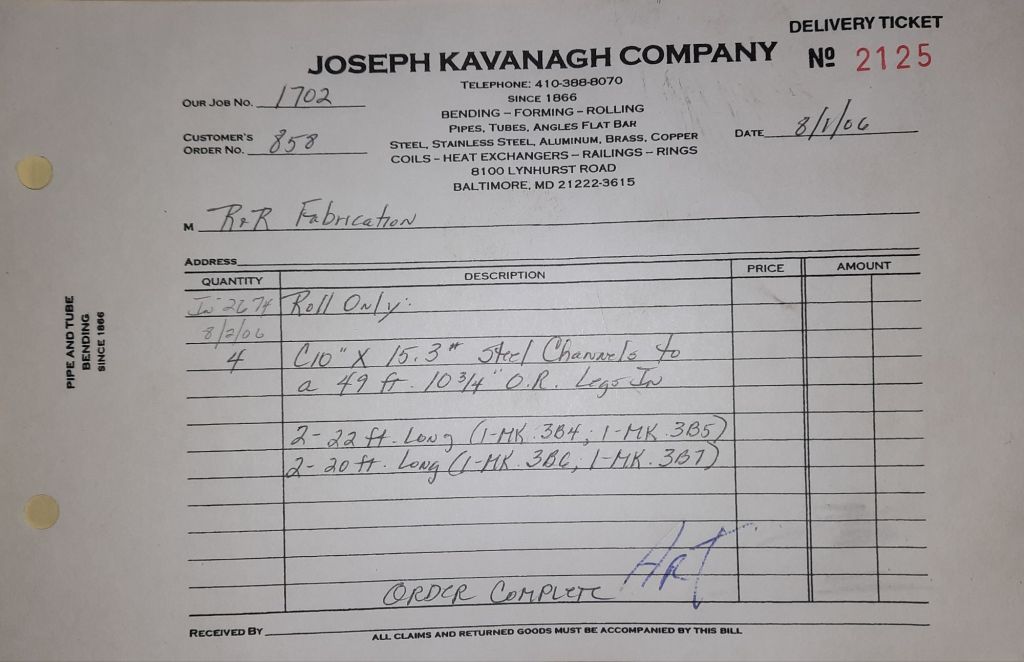 DELIVERY TICKET
JOSEPH KAVANAGH COMPANY
Nº 2125
TELEPHONE: 410-388-8070
SINCE 1866
OUR JOB NO. 1702
BENDING – FORMING – ROLLING
PIPES, TUBES, ANGLES FLAT BAR
CUSTOMER'S
ORDER NO. 858
STEEL, STAINLESS STEEL, ALUMINUM, BRASS, COPPER
DATE 8/1/06
COILS – HEAT EXCHANGERS – RAILINGS – RINGS
8100 LYNHURST ROAD
BALTIMORE, MD 21222-3615
M R&R Fabrication
ADDRESS
QUANTITY DESCRIPTION PRICE AMOUNT
In 2674 Roll Only:
8/2/06
4 C10" X 15.3# Steel Channels to
a 49 ft. 10 3/4" O.R. Legs In
2-22 ft. Long (1-MK. 3B4, 1-MK 3B5)
2-20 ft. Long (1-MK. 3B6, 1-MK. 3B7)
ORDER COMPLETE ART
RECEIVED BY
ALL CLAIMS AND RETURNED GOODS MUST BE ACCOMPANIED BY THIS BILL
PIPE AND TUBE
BENDING
SINCE 1866